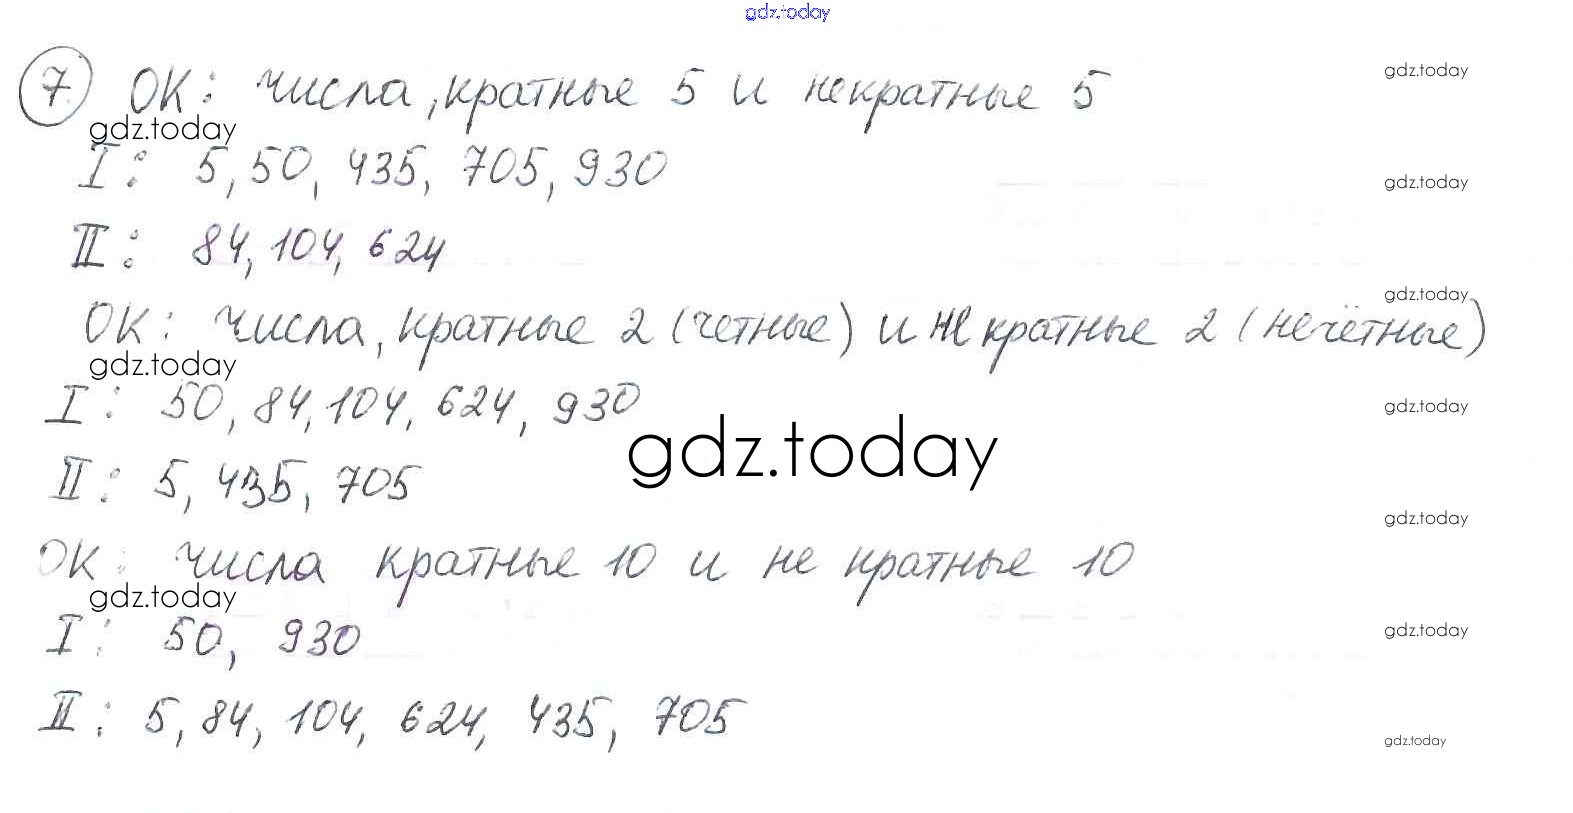 gdz.today
7 ОК: числа, кратные 5 и некратные 5
gdz.today
gdz.today
I: 5, 50, 435, 705, 930
gdz.today
II: 84, 104, 624
gdz.today
ОК: числа, кратные 2 (четные) и не кратные 2 (нечётные)
gdz.today
I: 50, 84, 104, 624, 930
gdz.today
gdz.today
II: 5, 435, 705
gdz.today
ОК: числа кратные 10 и не кратные 10
gdz.today
I: 50, 930
gdz.today
II: 5, 84, 104, 624, 435, 705
gdz.today